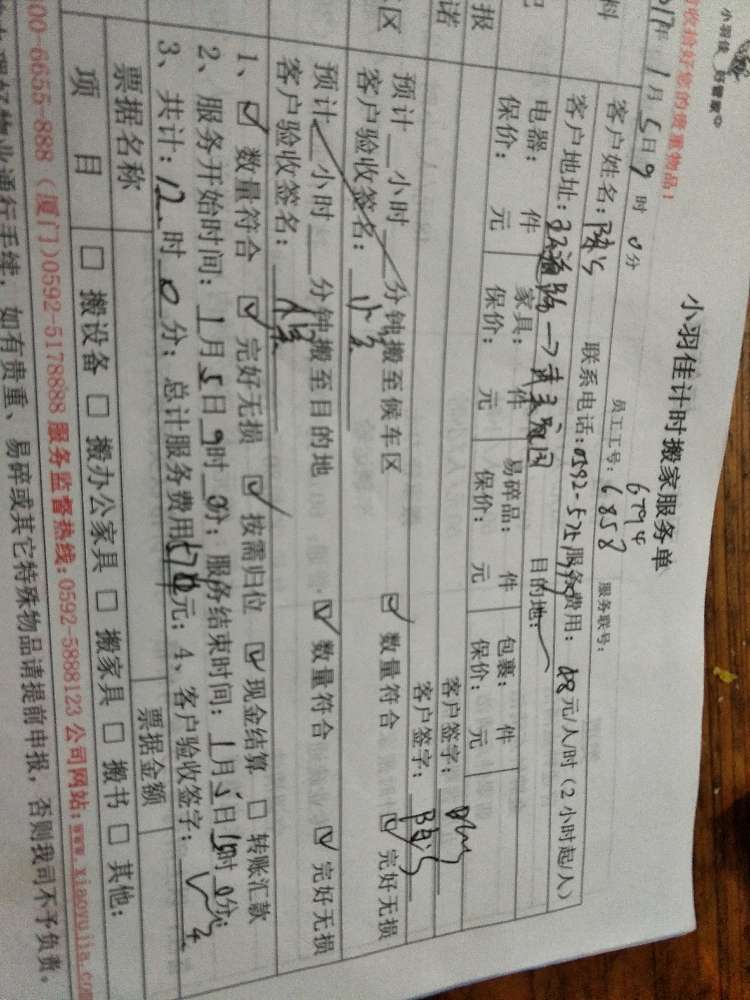 小羽佳计时搬家服务单
小羽佳 好管家
收拾好您的贵重物品！
员工工号：6858
6794
服务联号：
017年1月5日9时0分
客户姓名：
联系电话：0592-525
服务费用：68元/人/时（2小时起/人）
客户地址：
目的地：
电器： 件 家具： 件 易碎品： 件 包裹： 件
客户签字：
保价： 元 保价： 元 保价： 元 保价： 元
客户签字：
预计 小时 分钟搬至候车区
数量符合 完好无损
客户验收签名：
预计 小时 分钟搬至目的地
数量符合 完好无损
客户验收签名：
1、 数量符合 完好无损 按需归位 现金结算 转账汇款
2、服务开始时间：1月5日9时0分；服务结束时间：1月5日 时0分；
3、共计：12时0分；总计服务费用 元；4、客户验收签字：
票据名称
票据金额
项 目
搬设备 搬办公家具 搬家具 搬书 其他：
00-6655-888（厦门）0592-5178888 服务监督热线：0592-5888123 公司网站：www.xiaoyujia.com
办理好物业通行手续，如有贵重、易碎或其它特殊物品请提前申报，否则我司不予负责。